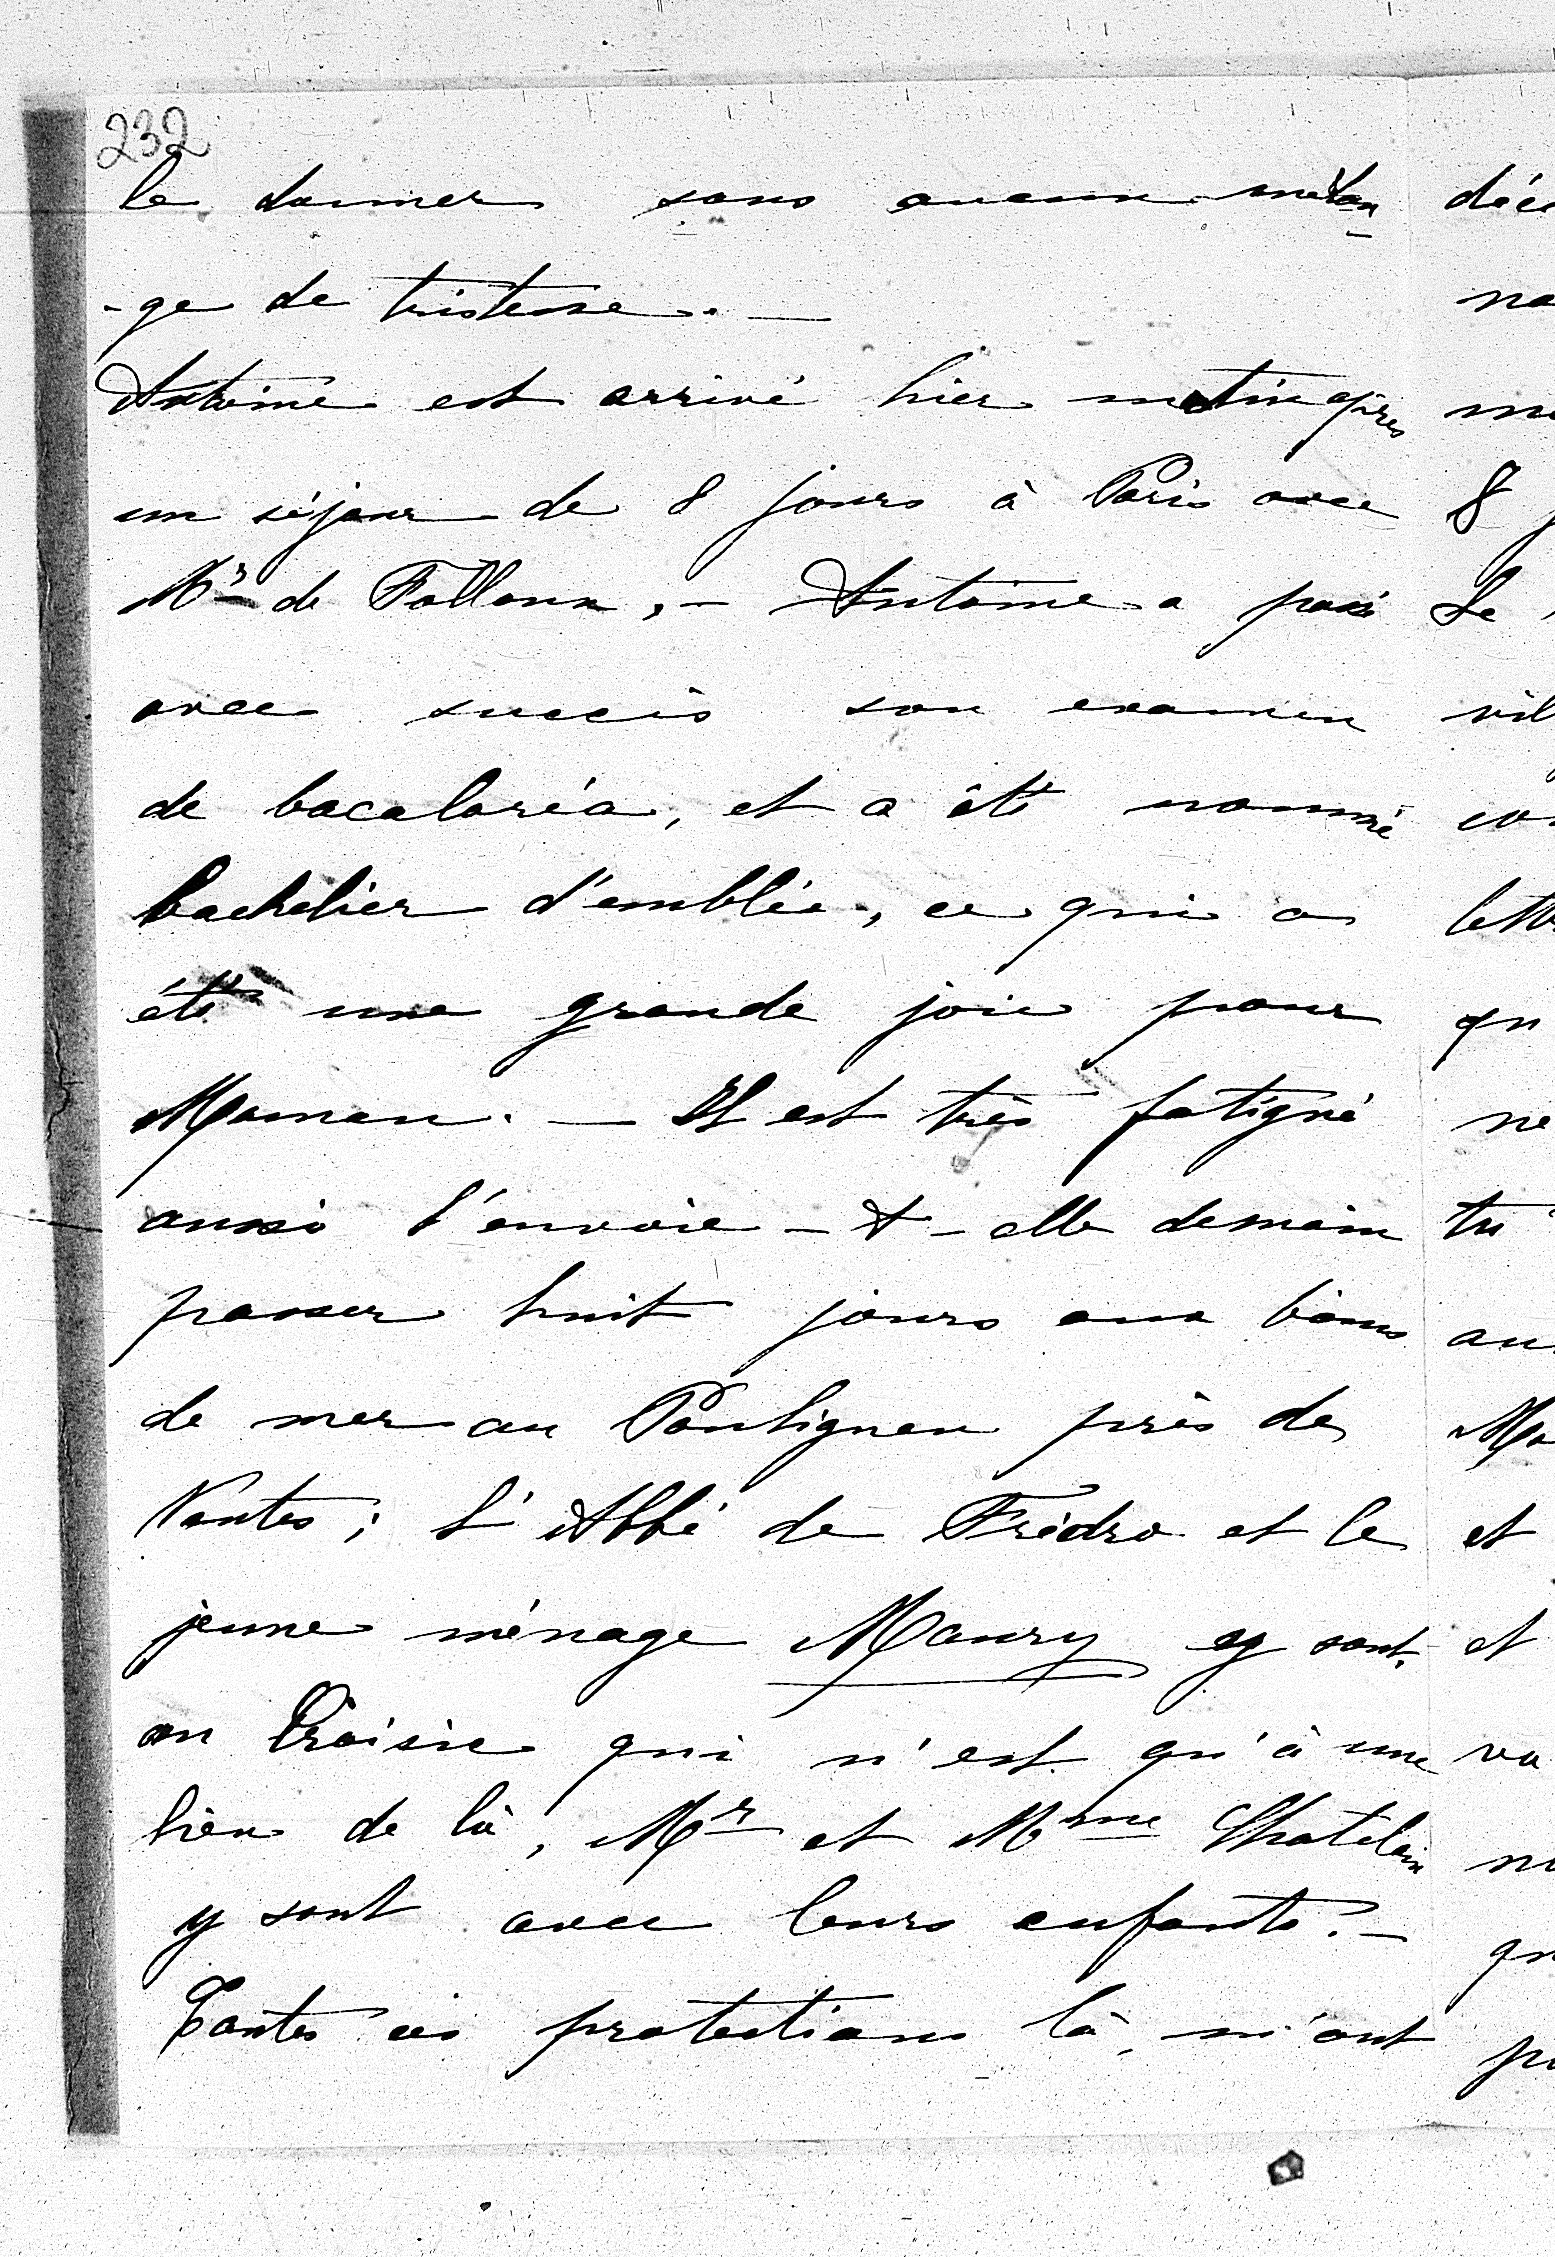 232
le donner sans aucun mélan
-ge de tristesse. —
Antoine est arrivé hier matin après
un séjour de 8 jours à Paris avec
Mr de Falloux, — Antoine a passé
avec succès son examen
de bacaloréa, et a été nommé
bachelier d'emblée, ce qui a
été une grande joie pour
Maman. — Il est très fatigué
aussi l'envoie - t - elle demain
passer huit jours aux bains
de mer au Pouliguen près de
Nantes; L'Abbé de Frédro et le
jeune ménage Maury y sont.
au Croisic qui n'est qu'à une
lieu de là, Mr et Mme Chatelain
y sont avec leurs enfants. —
Toutes ces protections là, m'ont